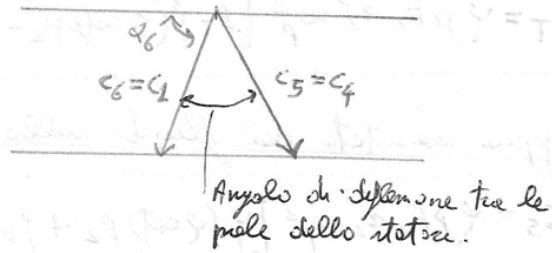 α₆
c₆=c₁
c₅=c₄
Angolo di deflessione tra le
pale dello statore.